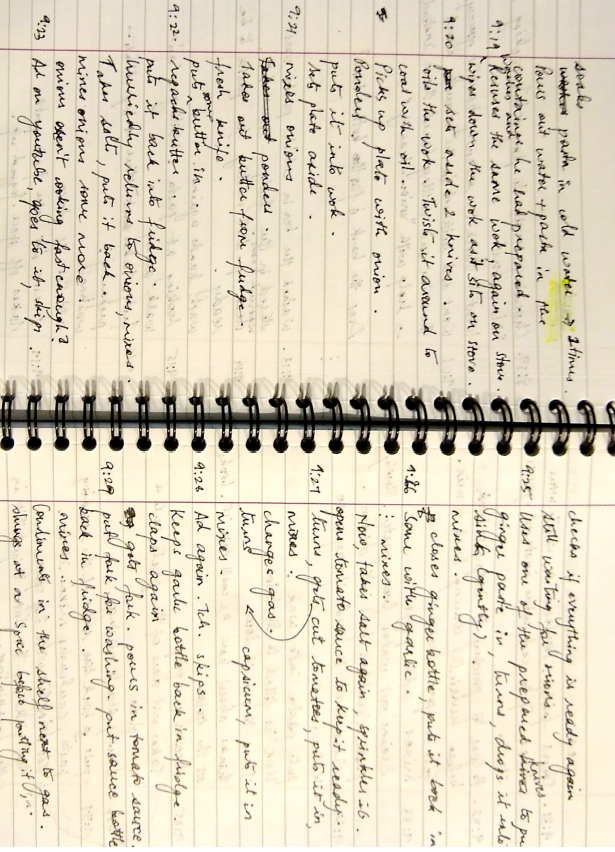 soaks
pasta in cold water → 2 times.
Pours out water + pasta in the
containers he had prepared.
9:19 Rewashes the same wok, again on stove.
wipes down the wok as it sits on stove.
9:20 sets aside 2 knives.
oils the wok. Twists it around to
coat with oil.
Picks up plate with onion.
Ponders.
puts it into wok.
sets plate aside.
9:21 mixes onions
Takes out ponders.
Takes out butter from fridge.
fresh knife.
puts butter in.
9:22 repacks butter.
puts it back into fridge.
Immediately returns to onions, mixes.
Takes salt, puts it back.
mixes onions some more.
onions aren't cooking fast enough?
9:23 Ad on youtube, goes to it, skips
checks if everything is ready again
still waiting for onions.
9:25 Uses one of the prepared knives to pu
ginger paste in, turns, drops it into
sink (gently).
mixes.
9:26 closes ginger bottle, puts it back in
same with garlic.
mixes
Now, takes salt again, sprinkles it.
opens tomato sauce to keep it ready.
9:27 turns, gets cut tomatoes, puts it in,
mixes.
changes gas.
turns capsicum, puts it in
mixes.
9:28 Ad again. Tch. skips.
Keeps garlic bottle back in fridge.
claps again
gets fork. pours in tomato sauce.
9:29 put fork for washing. put sauce bottle
back in fridge.
mixes.
Condiments in the shelf next to gas.
at a spice before putting it in.